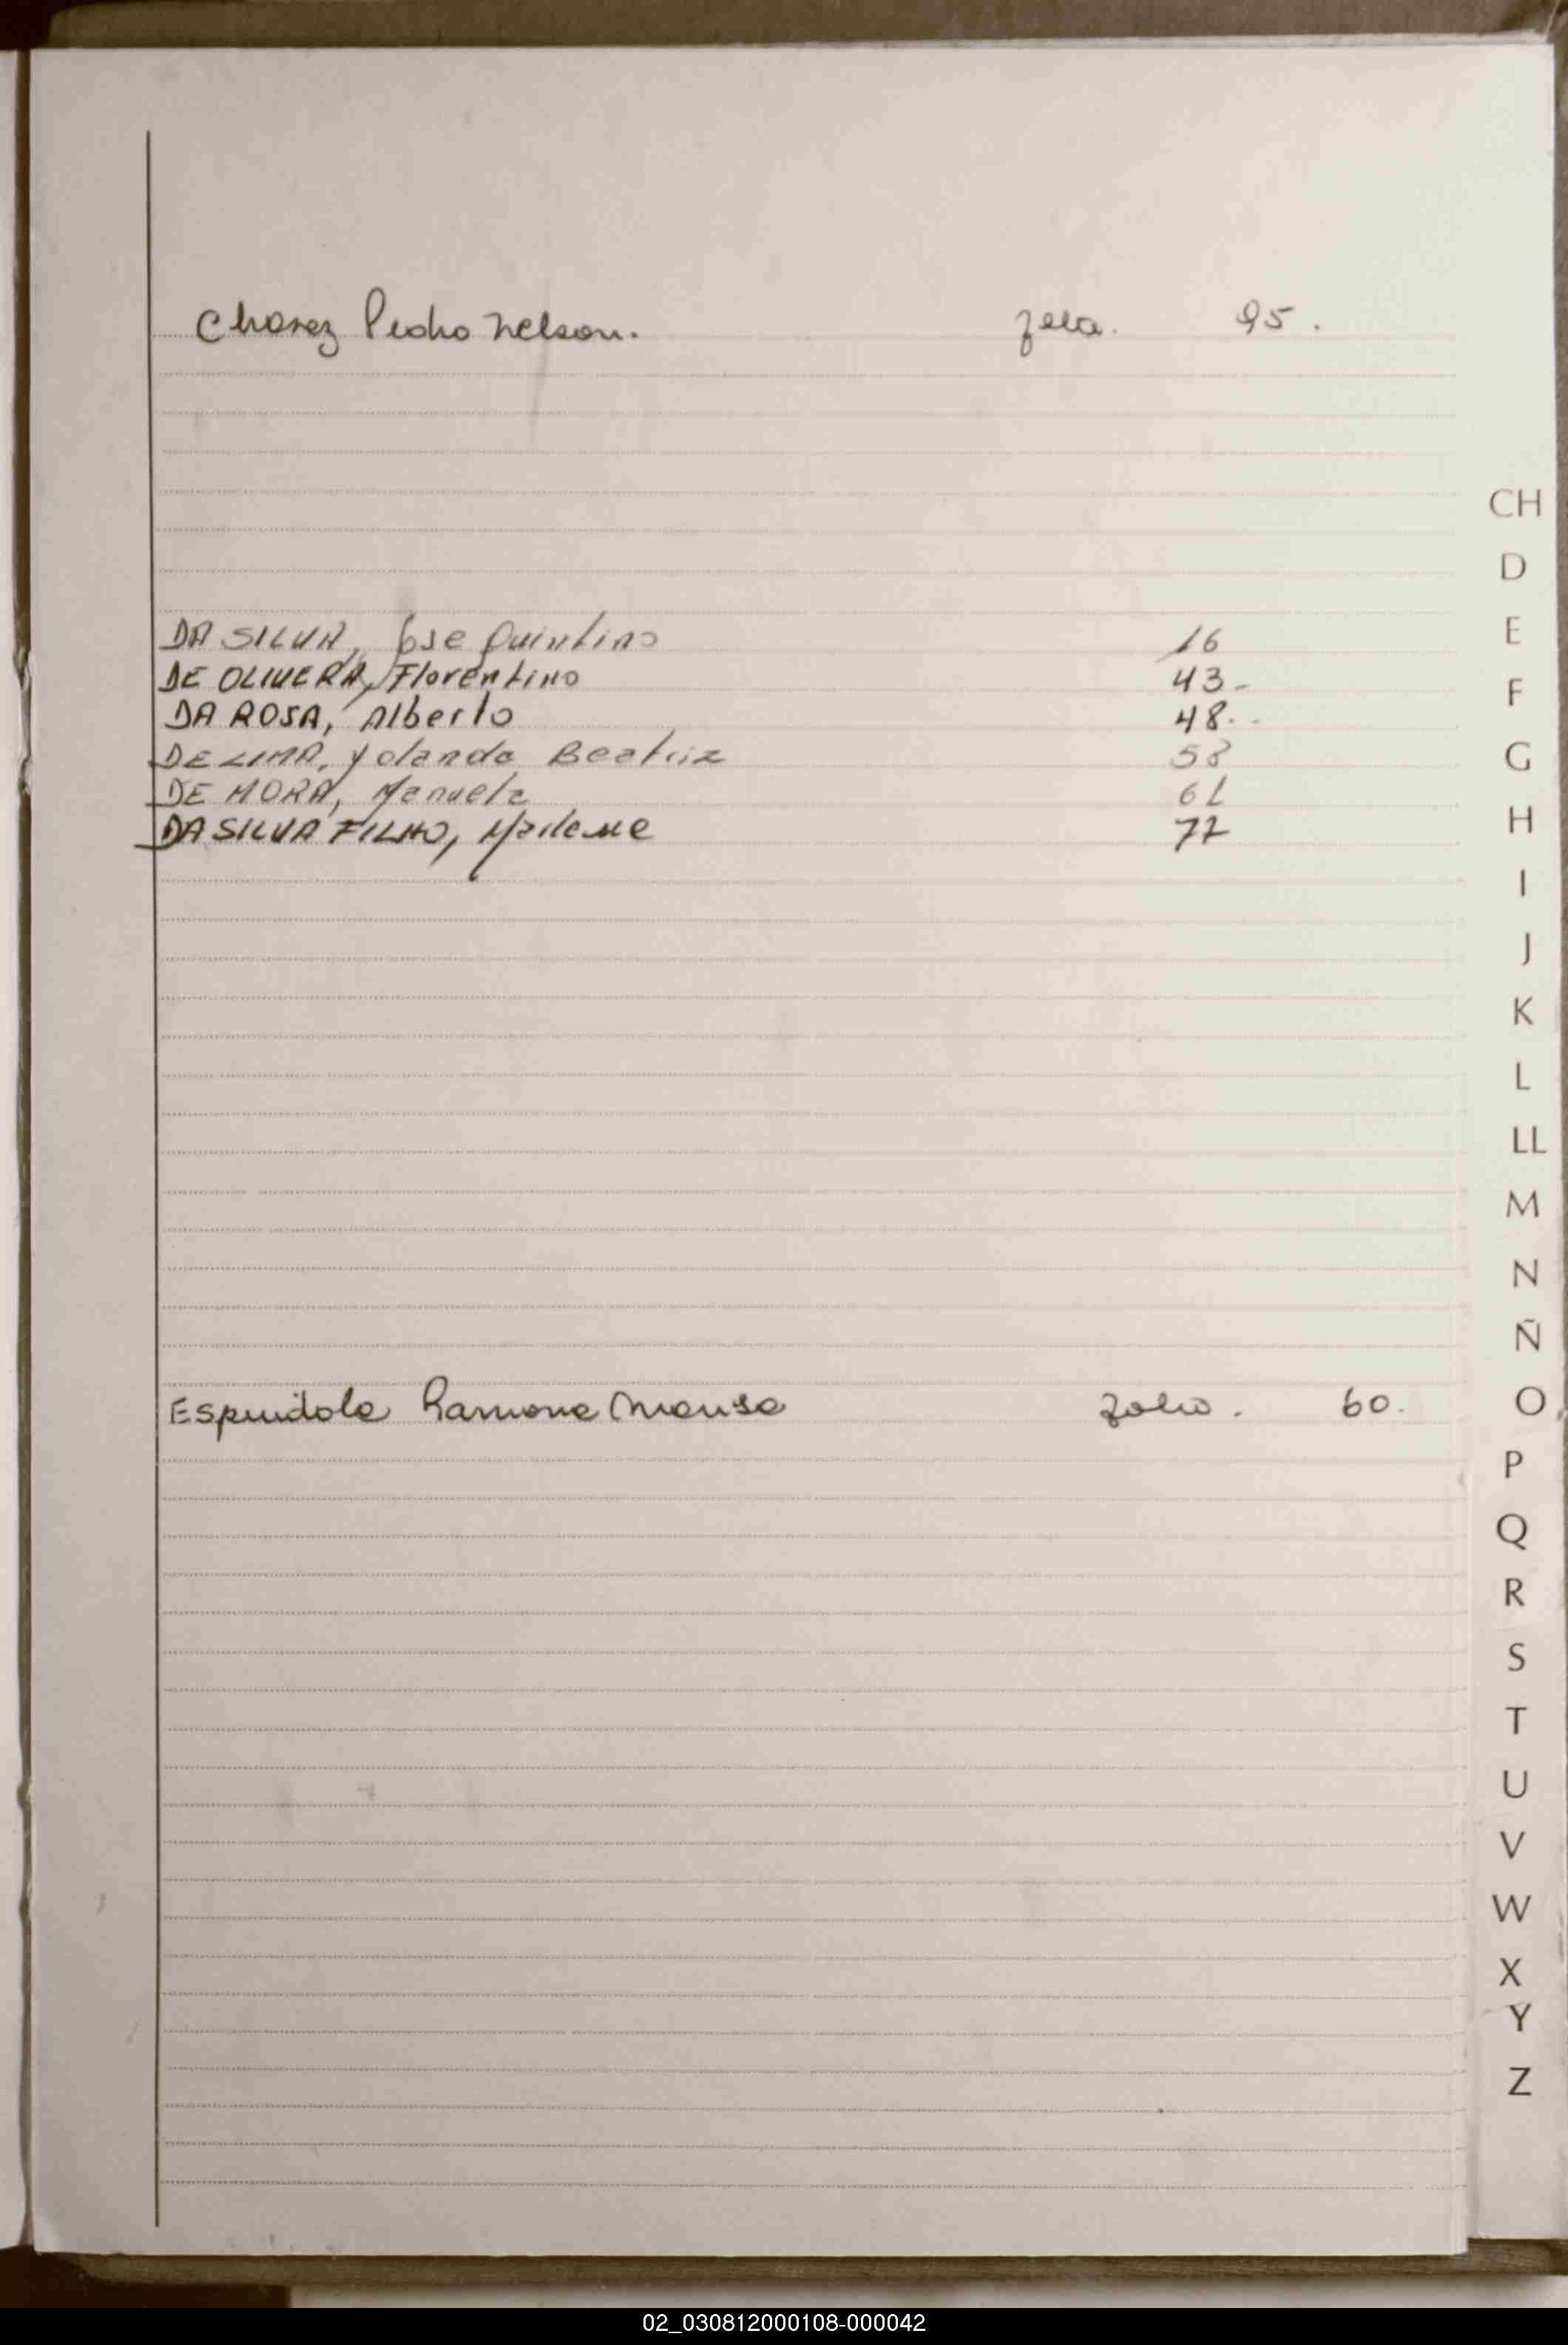 Chavez Pedro Nelson. 95.
DA SILVA, Jose Quintino 16
DE OLIVERA, Florentino 43-
DA ROSA, Alberto 48.-
DE LIMA, Yolanda Beatriz 58
DE MORA, Manuela 61
DA SILVA FILHO, Marlene 77
Espindola Ramona Folio. 60.
CH
D
E
F
G
H
I
J
K
L
LL
M
N
Ñ
O
P
Q
R
S
T
U
V
W
X
Y
Z
02_030812000108-000042